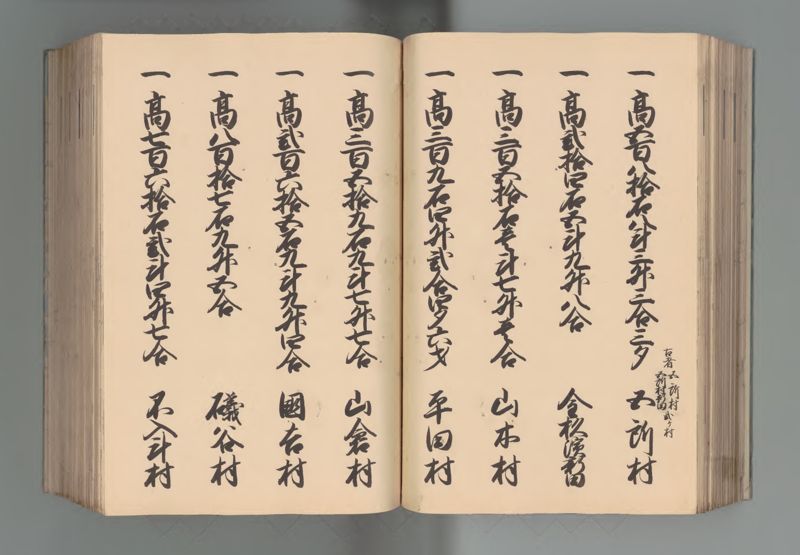 一 高五百八拾石八斗三升三合三夕 五所村
古者 五所村 弐ケ村
五所村新田
一 高弐拾四石五斗九升八合 今杉濱新田
一 高三百五拾石壱斗七升壱合 山木村
一 高三百九石四升弐合四夕六才 平田村
一 高三百五拾九石九斗七升七合 山倉村
一 高弐百六拾五石九斗九升四合 國吉村
一 高八百拾七石九升五合 礒谷村
一 高七百六拾石弐斗四升七合 不入斗村